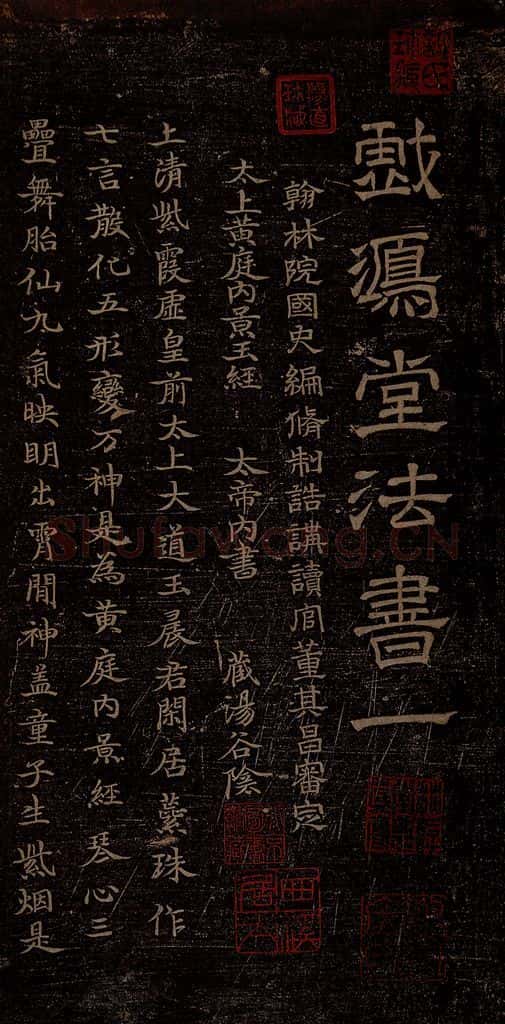 戲鴻堂法書一
翰林院國史編脩制誥講讀官董其昌審定
太上黃庭內景玉經 太帝內書 藏湯谷陰
上清紫霞虛皇前太上大道玉晨君閑居蘂珠作
七言散化五形變万神是為黃庭內景經 琴心三
疊舞胎仙九氣映明出霄間神盖童子生紫烟是
Shufawang.CN